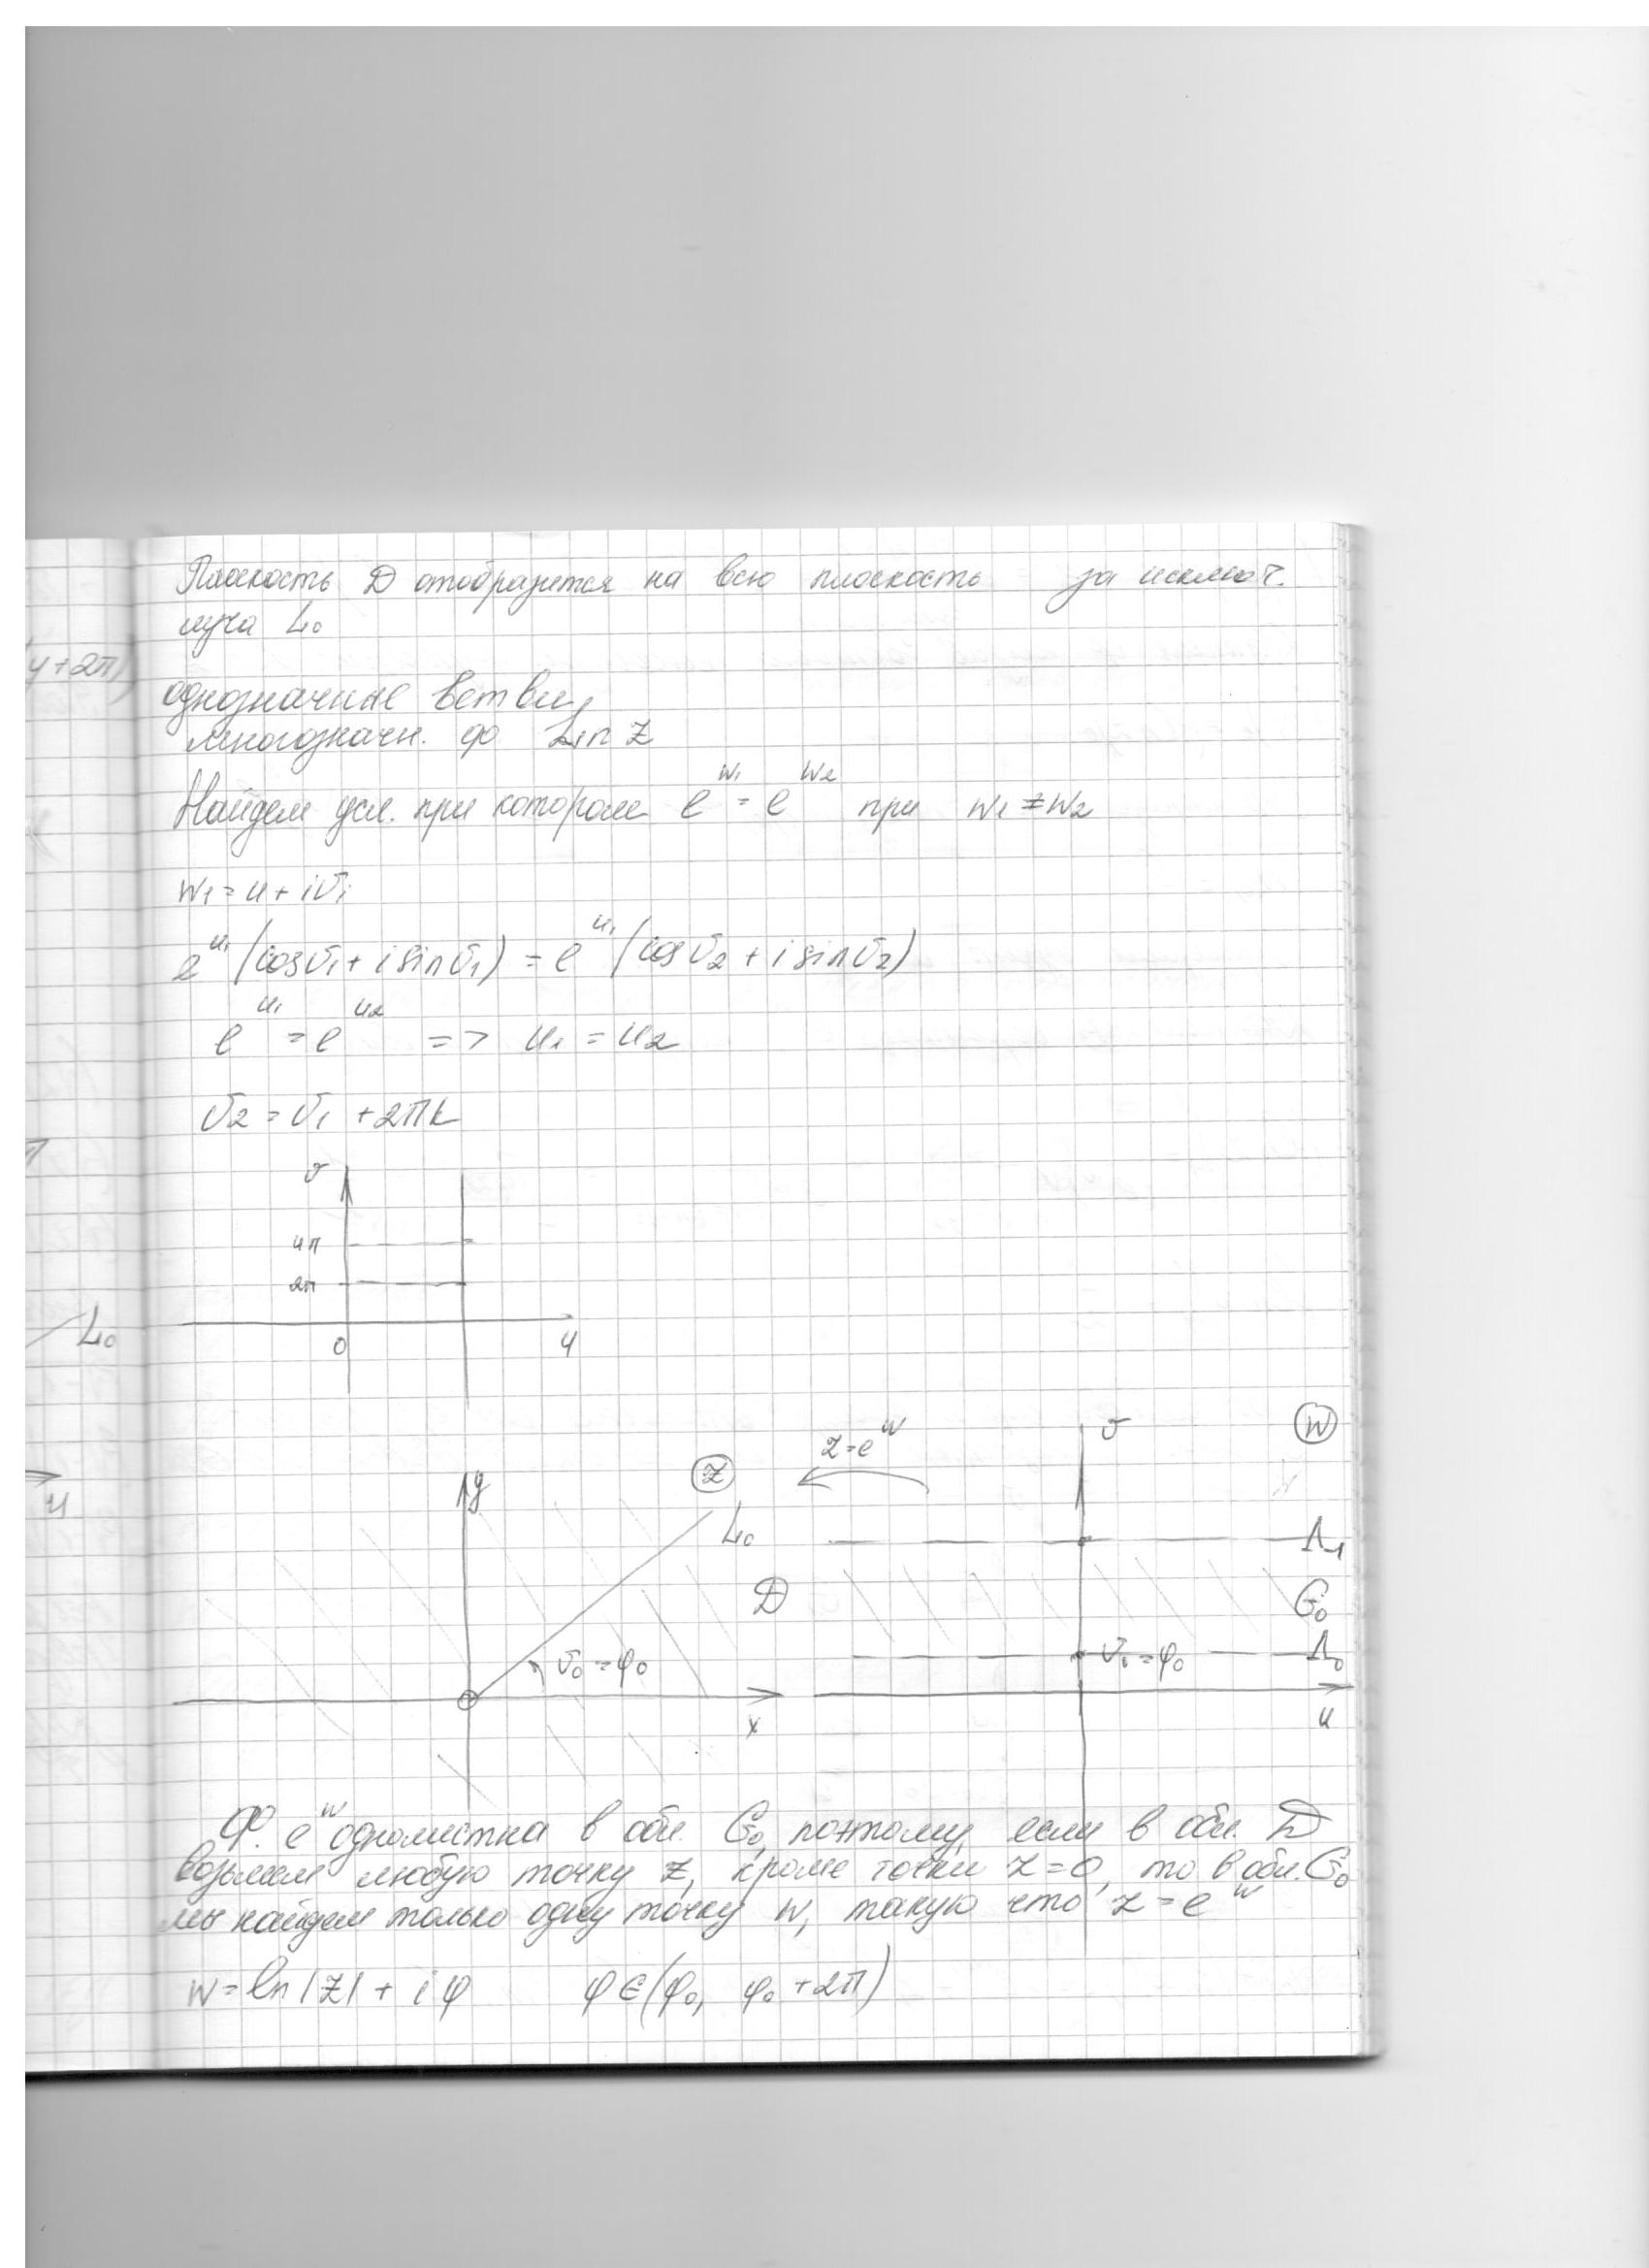 Плоскость D отобразится на всю плоскость за исключ.
луча L₀
y+2π)
однозначные ветви
многозначн. ф Ln z
Найдем усл. при котором e^w₁ = e^w₂ при w₁ ≠ w₂
w₁ = u + iv₁
e^u₁ (cos v₁ + i sin v₁) = e^u₁ (cos v₂ + i sin v₂)
e^u₁ = e^u₂ => u₁ = u₂
v₂ = v₁ + 2πk
v
4π
2π
0 u
L₀
u
y z z = e^w v w
L₀ Λ₁
D G₀
v₀ = φ₀ v₀ = φ₀ Λ₀
x u
Ф. e^w однолистна в обл. G₀, поэтому, если в обл. D
возьмем любую точку z, кроме точки z = 0, то в обл. G₀
мы найдем только одну точку w, такую что z = e^w
w = ln|z| + iφ φ ∈ (φ₀, φ₀ + 2π)